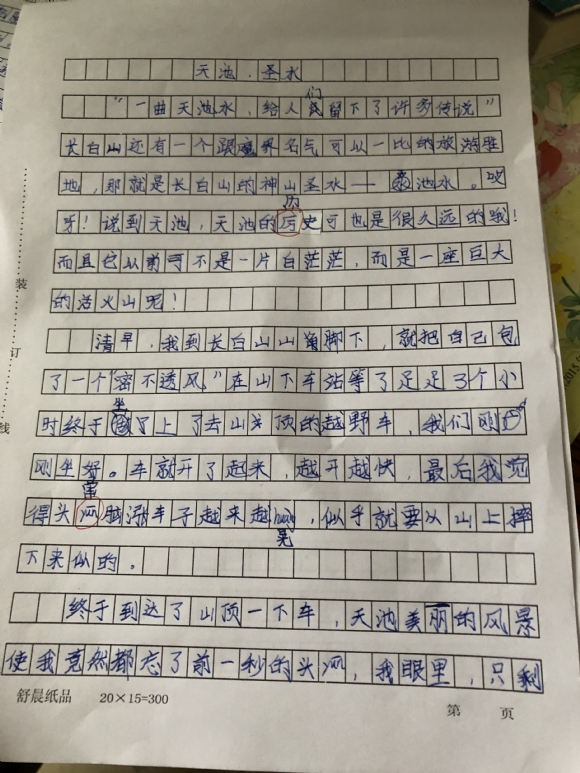 天池、圣水
们
“一曲天池水，给人民留下了许多传说”
长白山还有一个跟魔界名气可以一比的旅游胜
地，那就是长白山的神山圣水——池水。哎
历
呀！说到天池，天池的厉史可也是很久远的哦！
而且它以前可不是一片白茫茫，而是一座巨大
的活火山呢！
清早，我到长白山山脚下，就把自己包
了一个“密不透风”在山下车站等了足足3个小
坐
时终于了上了去山顶的越野车，我们刚
刚坐好。车就开了起来，越开越快，最后我觉
得头脑涨车子越来越，似乎就要从山上摔
晃
下来似的。
终于到达了山顶一下车，天池美丽的风景
使我竟然都忘了前一秒的头，我眼里，只剩
装
订
线
舒晨纸品 20×15=300 第 页